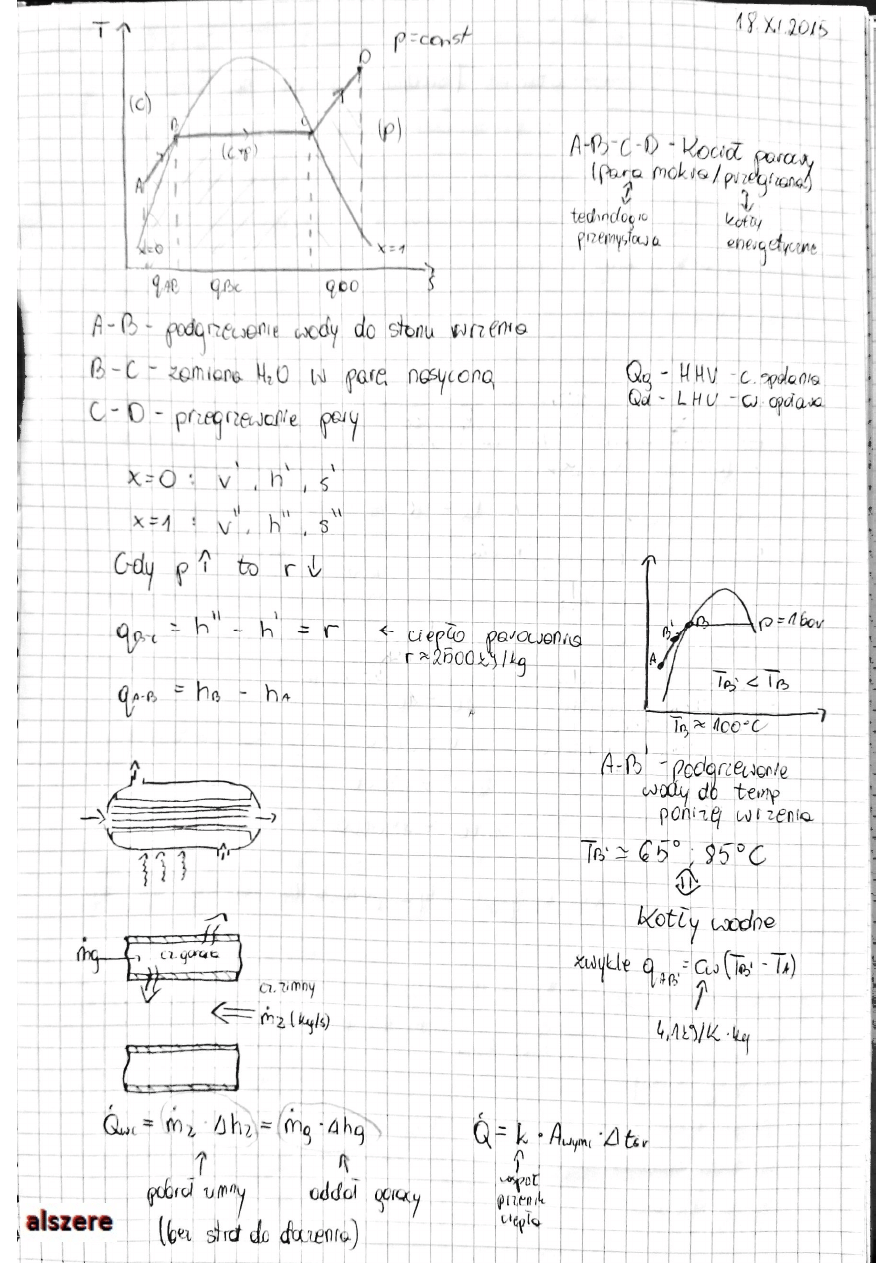 18.XI.2015
T
p=const
D
(C)
B
C
(p)
(c+p)
A
x=0
x=1
s
qAB qBC qCD
A-B-C-D - Kocioł parowy
(para mokra/przegrzana)
technologia
przemysłowa
kotły
energetyczne
A-B - podgrzewanie wody do stanu wrzenia
B-C - zamiana H₂O w parę nasyconą
C-D - przegrzewanie pary
Qg - HHV - c. spalania
Qd - LHV - w. opałowa
x=0 : v', h', s'
x=1 : v'', h'', s''
Gdy p↑ to r↓
qB-C = h'' - h' = r ← ciepło parowania
r≈2500kJ/kg
qA-B = hB - hA
B' B
p=1bar
A
TB' < TB
TB ≈ 100°C
A-B' - podgrzewanie
wody do temp
poniżej wrzenia
TB' ≃ 65° ; 85°C
Kotły wodne
zwykle qAB' = cw(TB' - TA)
4,1kJ/K·kg
ṁg
cz. gorący
cz. zimny
ṁz (kg/s)
Q̇wc = ṁz · Δhz = ṁg · Δhg
pobrał zimny
oddał gorący
(bez strat do otoczenia)
Q̇ = k · Awymi · Δtśr
współ
przenik
ciepła
alszere